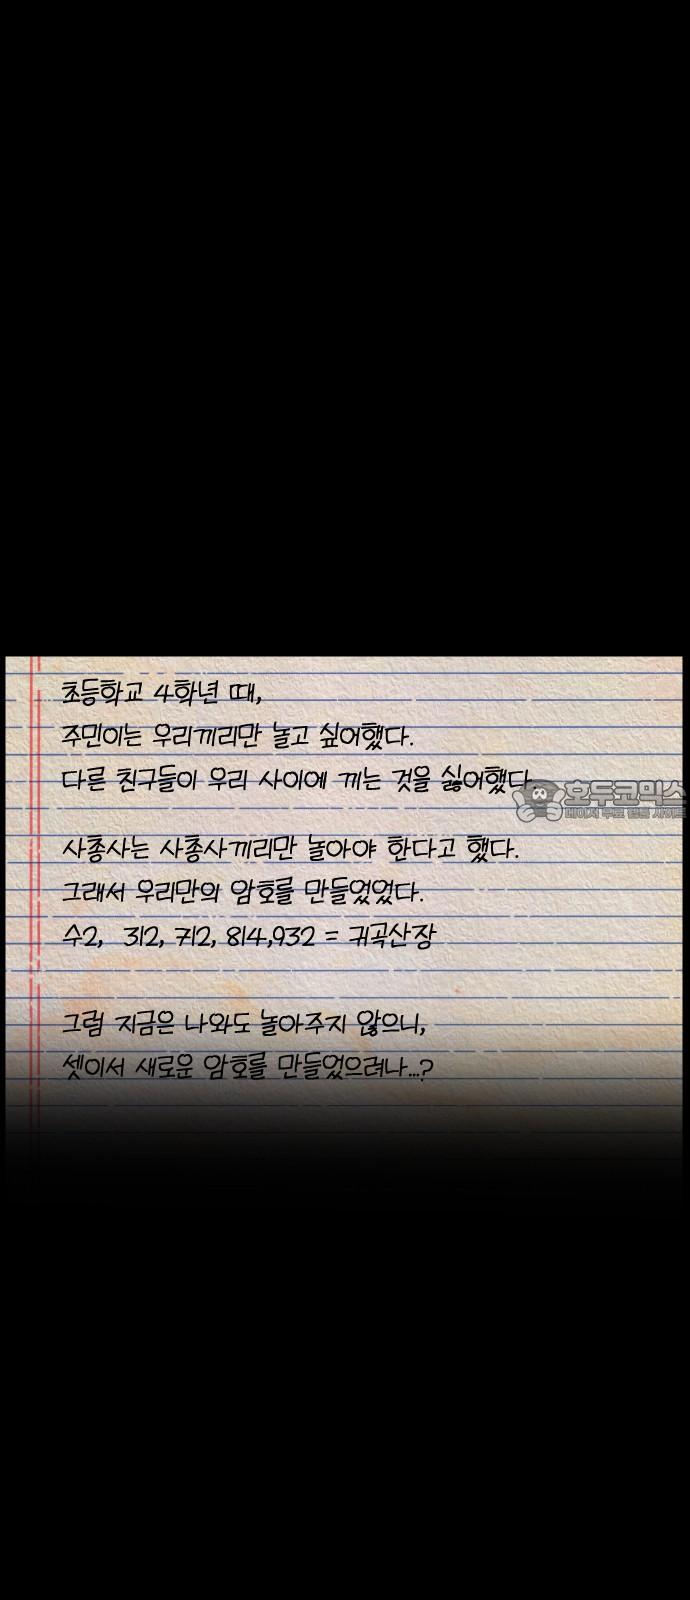 초등학교 4학년 때,
주민이는 우리끼리만 놀고 싶어했다.
다른 친구들이 우리 사이에 끼는 것을 싫어했다
호두코믹스
페이지 무료 웹툰 사이트
사총사는 사총사끼리만 놀아야 한다고 했다.
그래서 우리만의 암호를 만들었었다.
수2, 312, 712, 814,932 = 귀곡산장
그럼 지금은 나와도 놀아주지 않으니,
셋이서 새로운 암호를 만들었으려나...?